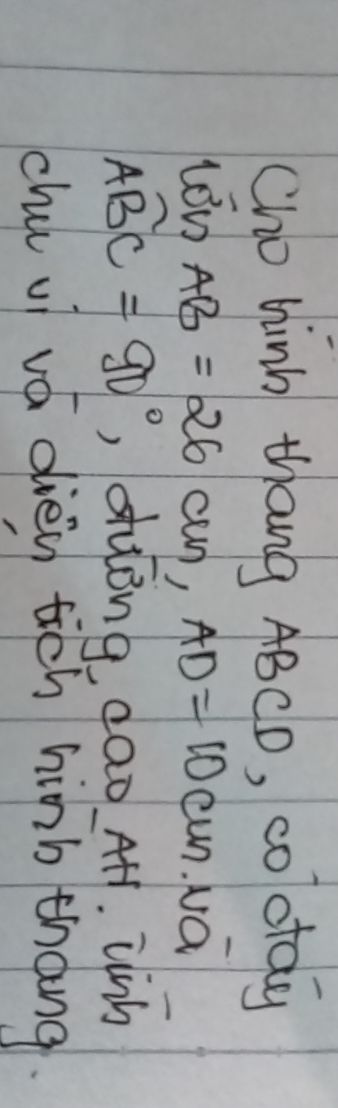 Cho hình thang ABCD, có đáy
lớn AB = 26 cm, AD = 10 cm. và
ABC = 90°, đường cao AH. Tính
chu vi và diện tích hình thang.